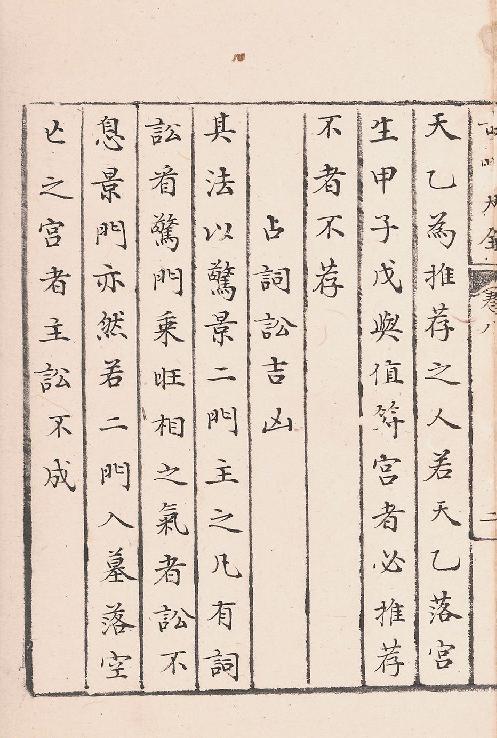 天乙為推荐之人若天乙落宮
生甲子戊與值符宮者必推荐
不者不荐
占詞訟吉凶
其法以驚景二門主之凡有詞
訟看驚門乗旺相之氣者訟不
息景門亦然若二門入墓落空
亡之宮者主訟不成